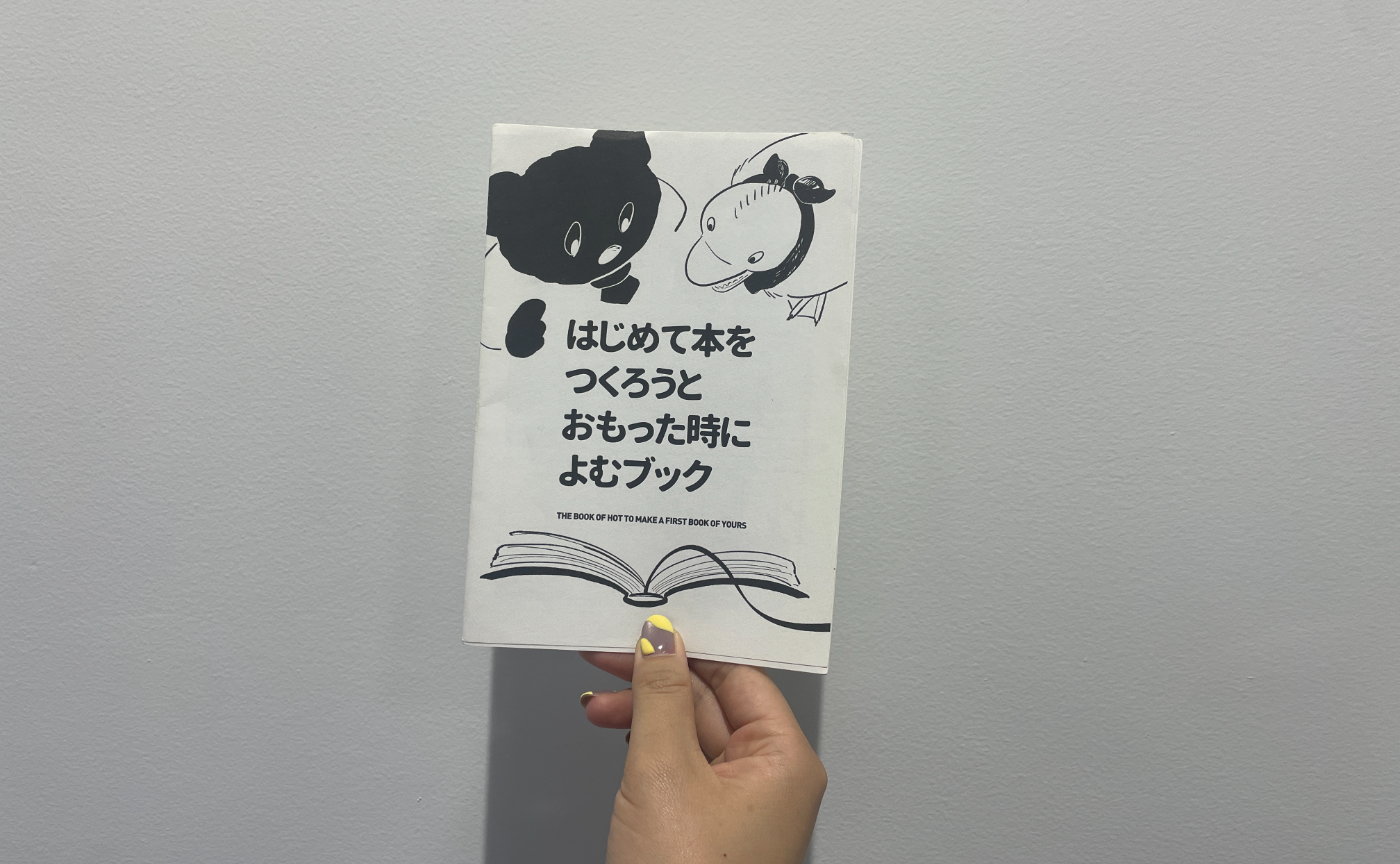 はじめて本を
つくろうと
おもった時に
よむブック
THE BOOK OF HOT TO MAKE A FIRST BOOK OF YOURS